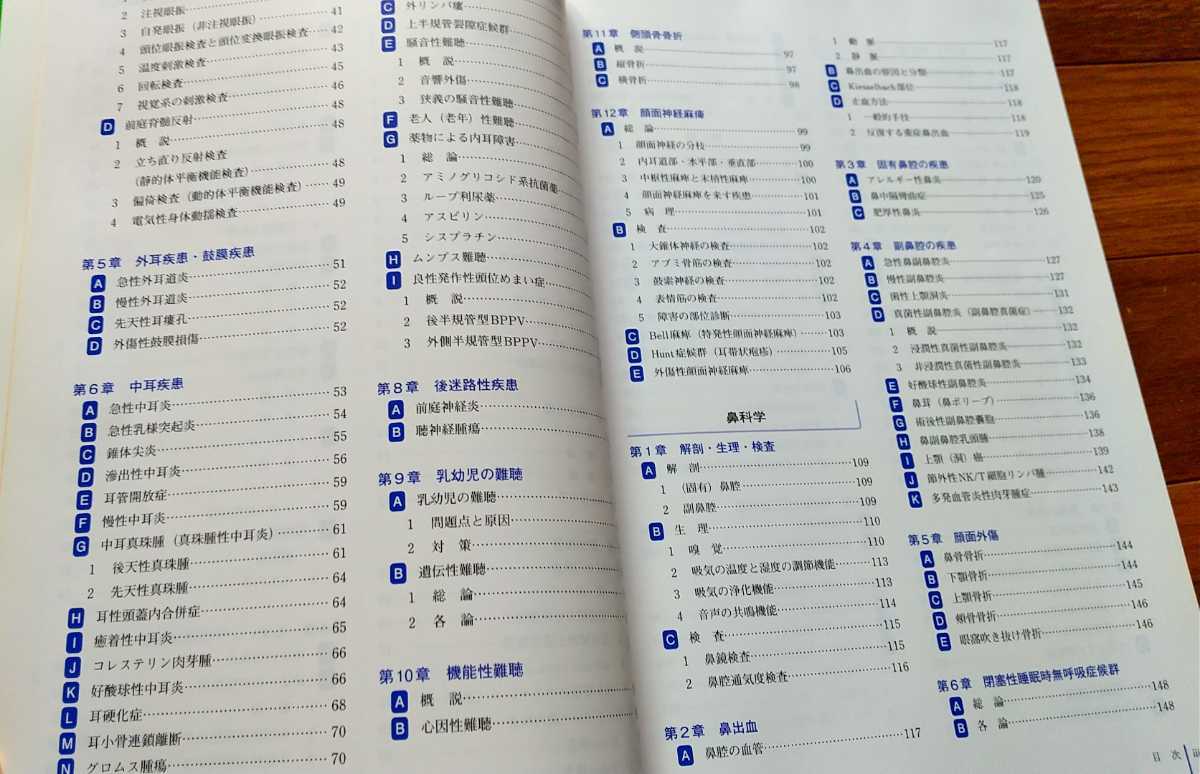 2 注視眼振
3 自発眼振（非注視眼振）…… 41
4 頭位眼振検査と頭位変換眼振検査…… 42
5 温度刺激検査…… 43
6 回転検査…… 45
7 視覚系の刺激検査…… 46
D 前庭脊髄反射…… 48
1 概　説…… 48
2 立ち直り反射検査
（静的体平衡機能検査）…… 48
3 偏倚検査（動的体平衡機能検査）…… 49
4 電気性身体動揺検査…… 49
第5章　外耳疾患・鼓膜疾患
A 急性外耳道炎…… 51
B 慢性外耳道炎…… 52
C 先天性耳瘻孔…… 52
D 外傷性鼓膜損傷…… 52
第6章　中耳疾患
A 急性中耳炎…… 53
B 急性乳様突起炎…… 54
C 錐体尖炎…… 55
D 滲出性中耳炎…… 56
E 耳管開放症…… 59
F 慢性中耳炎…… 59
G 中耳真珠腫（真珠腫性中耳炎）…… 61
1 後天性真珠腫…… 61
2 先天性真珠腫…… 64
H 耳性頭蓋内合併症…… 64
I 癒着性中耳炎…… 65
J コレステリン肉芽腫…… 66
K 好酸球性中耳炎…… 66
L 耳硬化症…… 68
M 耳小骨連鎖離断…… 70
N グロムス腫瘍…… 70
C 外リンパ瘻
D 上半規管裂隙症候群
E 騒音性難聴
1 概　説
2 音響外傷
3 狭義の騒音性難聴
F 老人（老年）性難聴
G 薬物による内耳障害
1 総　論
2 アミノグリコシド系抗菌薬
3 ループ利尿薬
4 アスピリン
5 シスプラチン
H ムンプス難聴
I 良性発作性頭位めまい症
1 概　説
2 後半規管型BPPV
3 外側半規管型BPPV
第8章　後迷路性疾患
A 前庭神経炎
B 聴神経腫瘍
第9章　乳幼児の難聴
A 乳幼児の難聴
1 問題点と原因
2 対　策
B 遺伝性難聴
1 総　論
2 各　論
第10章　機能性難聴
A 概　説
B 心因性難聴
第11章　側頭骨骨折
A 概　説…… 97
B 縦骨折…… 97
C 横骨折…… 98
第12章　顔面神経麻痺
A 総　論…… 99
1 顔面神経の分枝…… 99
2 内耳道部・水平部・垂直部…… 100
3 中枢性麻痺と末梢性麻痺…… 100
4 顔面神経麻痺を来す疾患…… 101
5 病　理…… 101
B 検　査…… 102
1 大錐体神経の検査…… 102
2 アブミ骨筋の検査…… 102
3 鼓索神経の検査…… 102
4 表情筋の検査…… 102
5 障害の部位診断…… 103
C Bell麻痺（特発性顔面神経麻痺）…… 103
D Hunt症候群（耳帯状疱疹）…… 105
E 外傷性顔面神経麻痺…… 106
鼻科学
第1章　解剖・生理・検査
A 解　剖…… 109
1 （固有）鼻腔…… 109
2 副鼻腔…… 109
B 生　理…… 110
1 嗅　覚…… 110
2 吸気の温度と湿度の調節機能…… 113
3 吸気の浄化機能…… 113
4 音声の共鳴機能…… 114
C 検　査…… 115
1 鼻鏡検査…… 115
2 鼻腔通気度検査…… 116
第2章　鼻出血
A 鼻腔の血管…… 117
1 動　脈…… 117
2 静　脈…… 117
B 鼻出血の原因と分類…… 117
C Kiesselbach部位…… 118
D 止血方法…… 118
1 一般的手技…… 118
2 反復する重症鼻出血…… 119
第3章　固有鼻腔の疾患
A アレルギー性鼻炎…… 120
B 鼻中隔彎曲症…… 125
C 肥厚性鼻炎…… 126
第4章　副鼻腔の疾患
A 急性鼻副鼻腔炎…… 127
B 慢性副鼻腔炎…… 127
C 歯性上顎洞炎…… 131
D 真菌性副鼻腔炎（副鼻腔真菌症）…… 132
1 概　説…… 132
2 浸潤性真菌性副鼻腔炎…… 132
3 非浸潤性真菌性副鼻腔炎…… 133
E 好酸球性副鼻腔炎…… 134
F 鼻茸（鼻ポリープ）…… 136
G 術後性副鼻腔嚢胞…… 136
H 鼻副鼻腔乳頭腫…… 138
I 上顎（洞）癌…… 139
J 節外性NK/T細胞リンパ腫…… 142
K 多発血管炎性肉芽腫症…… 143
第5章　顔面外傷
A 鼻骨骨折…… 144
B 下顎骨折…… 144
C 上顎骨折…… 145
D 頰骨骨折…… 146
E 眼窩吹き抜け骨折…… 146
第6章　閉塞性睡眠時無呼吸症候群
A 総　論…… 148
B 各　論…… 148
目　次